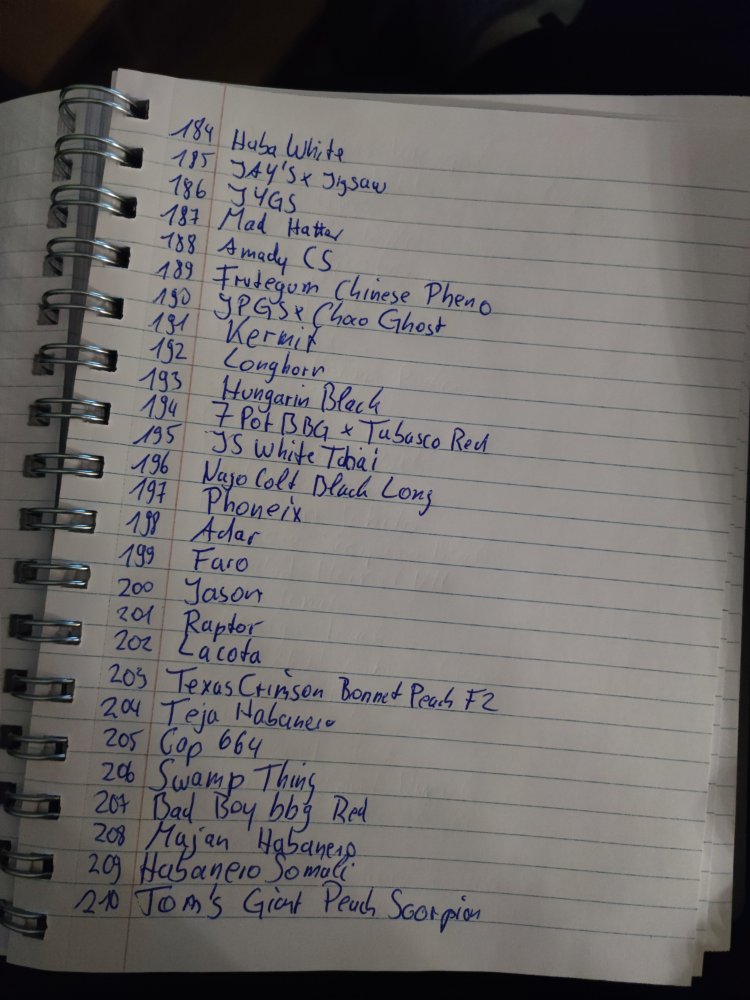 184 Haba White
185 JAY'S x Jigsaw
186 J4GS
187 Mad Hatter
188 Amady CS
189 Frutegum Chinese Pheno
190 JPGS x Chao Ghost
191 Kermit
192 Longhorn
193 Hungarin Black
194 7 Pot BBG x Tabasco Red
195 JS White Tobai
196 Nago Colt Black Long
197 Phoneix
198 Adar
199 Faro
200 Jason
201 Raptor
202 Lacota
203 Texas Crimson Bonnet Peach F2
204 Teja Habanero
205 Cap 664
206 Swamp Thing
207 Bad Boy bbg Red
208 Majan Habanero
209 Habanero Somali
210 Tom's Giant Peach Scorpion